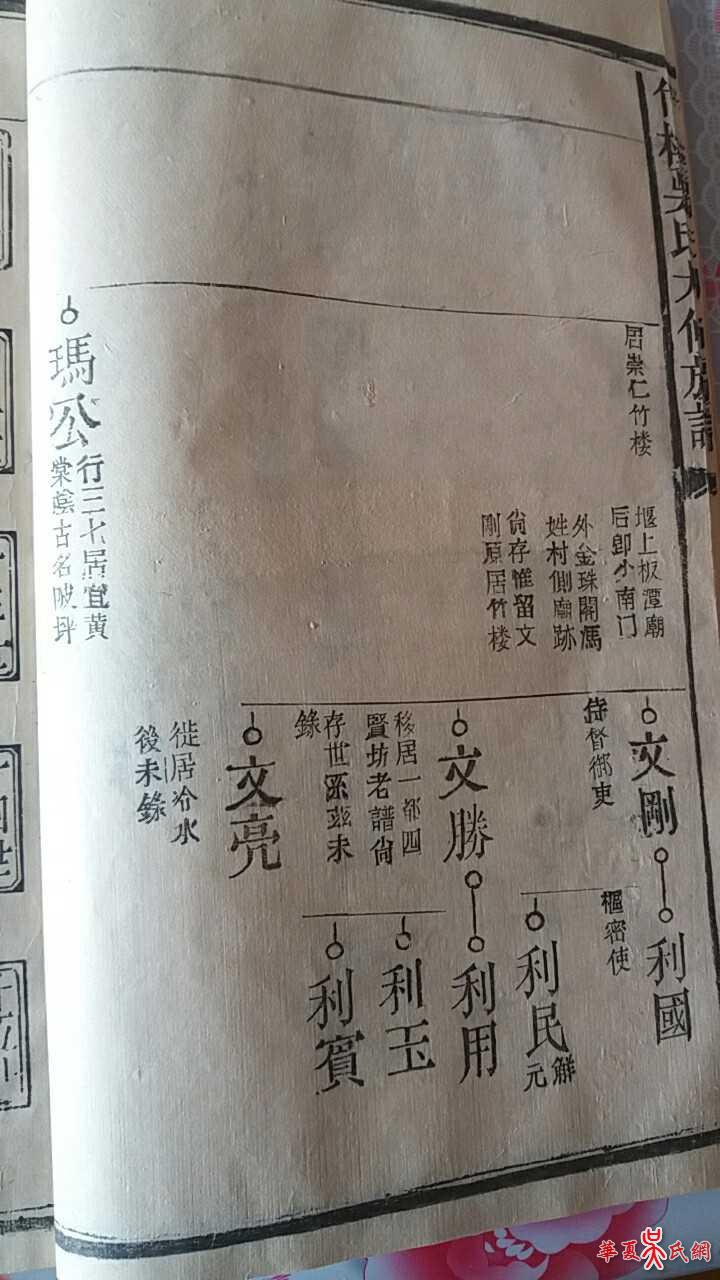 竹楼吳氏大修族譜
居崇仁竹楼
堰上板潭廟
后郎少南门
外金珠關馮
姓村側廟跡
尙存惟留文
剛原居竹楼
文剛
侍督御吏
利國
樞密使
利民
解元
文勝
移居一都四
賢坊老譜尙
存世系茲未
錄
利用
利玉
利賓
文亮
徙居冷水
後未錄
瑪公
行三七居宜黃
棠蔭古名陂坪
華夏吳氏網